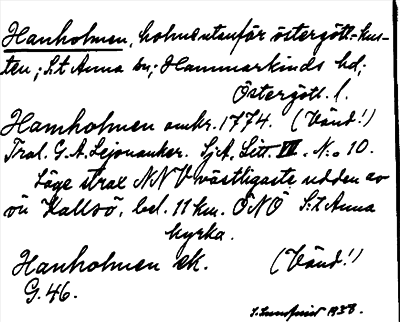 Hanholmen, holme utanför östergött.-kus-
ten; S:t Anna sn; Hammarkinds hd;
Östergötl. l.
Hamholmen omkr. 1774. (Vänd!)
Tral. G. A. Lejonanker. Sj.A. Litt VII. N:o 10.
Läge strax NNV västligaste udden av
ön Kallsö, bel. 11 km. ÖNÖ S:t Anna
kyrka.
Hanholmen ek. (Vänd!)
G. 46.
1938.